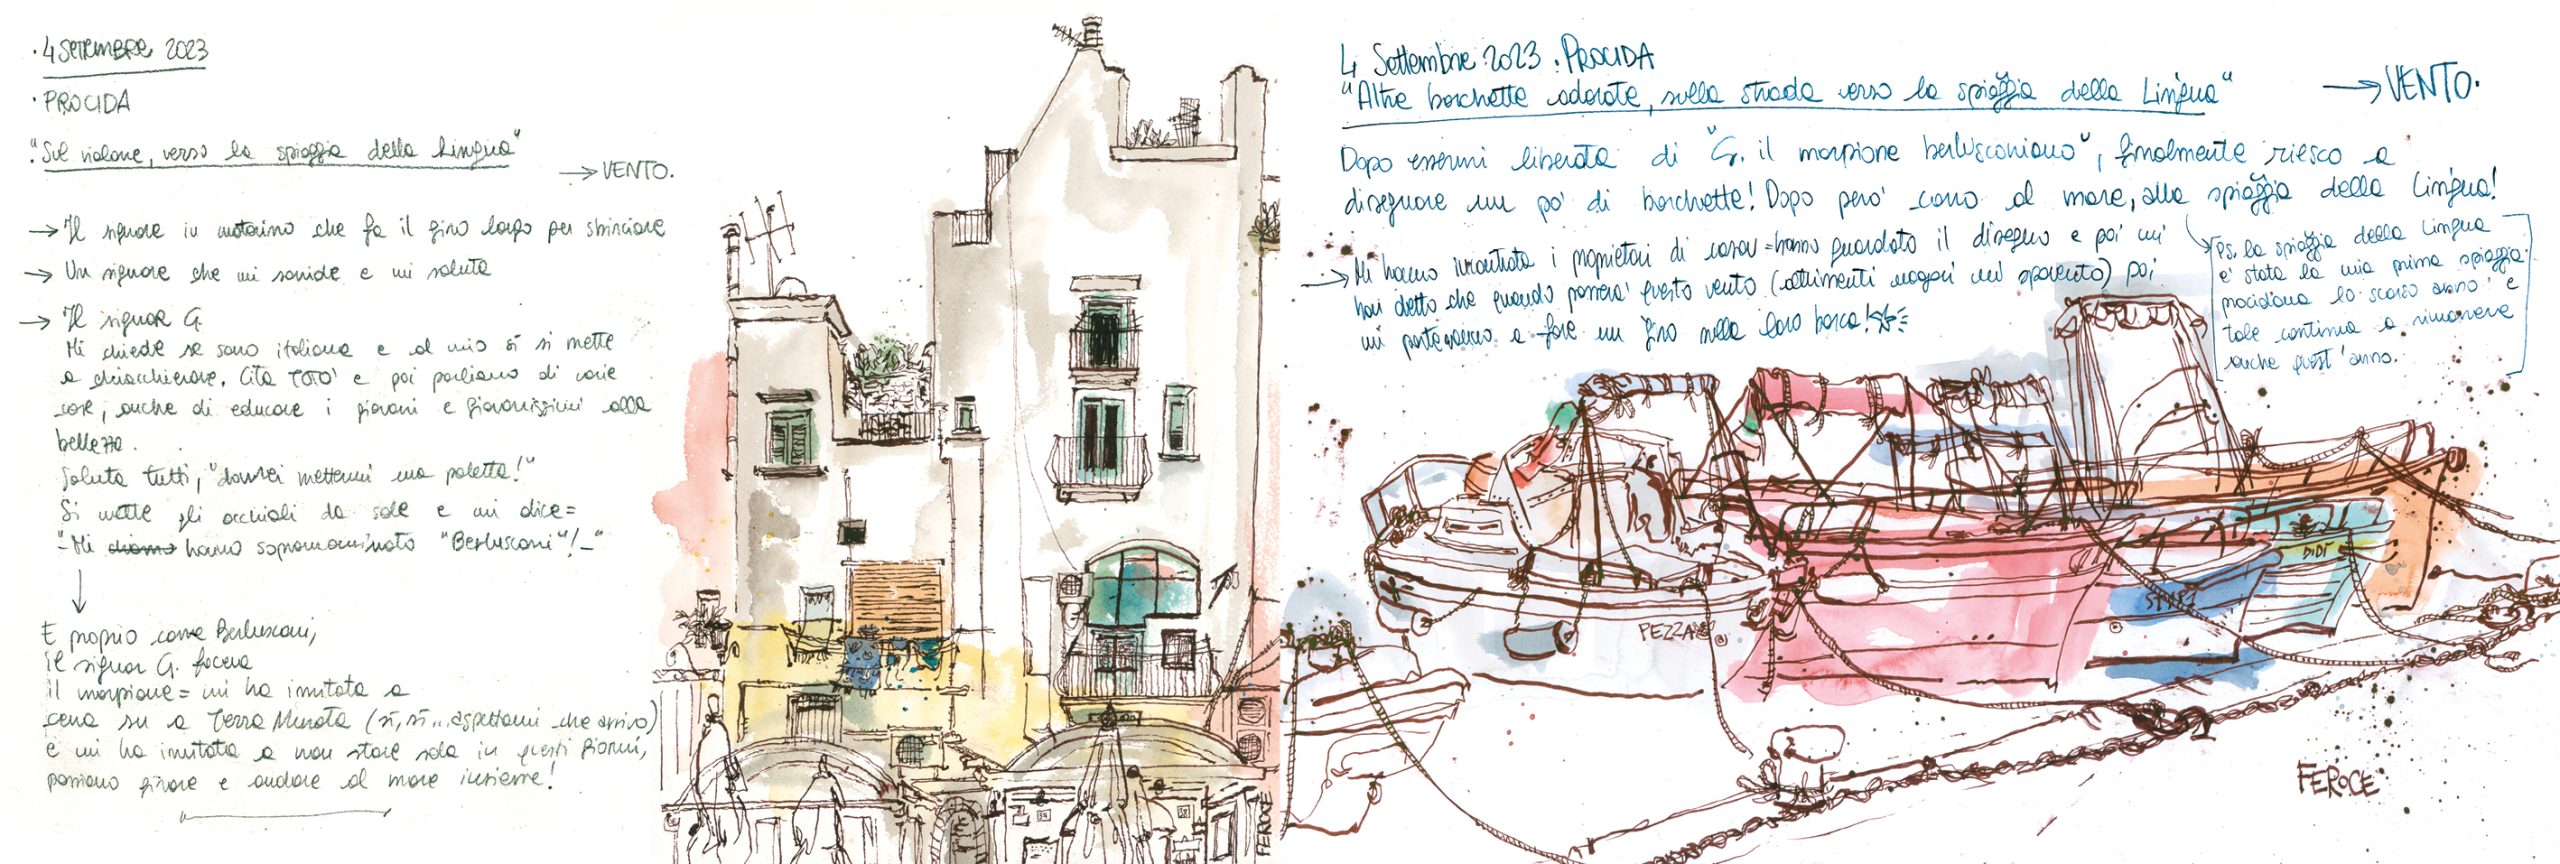 · 4 SETTEMBRE 2023
· PROCIDA
"Sul vialone, verso la spiaggia della Lingua"
→ VENTO.
→ Il signore in motorino che fa il giro largo per sbirciare
→ Un signore che mi sorride e mi saluta
→ Il signor G.
Mi chiede se sono italiana e al mio sì si mette
a chiacchierare. Cita TOTO' e poi parliamo di varie
cose, anche di educare i giovani e giovanissimi alla
bellezza.
Saluta tutti, "dovrei mettermi una paletta!"
Si mette gli occhiali da sole e mi dice=
"-Mi chiamo hanno soprannominato "Berlusconi"!-"
↓
E proprio come Berlusconi,
il signor G. faceva
il marpione= mi ha invitata a
cena su a Terra Murata (sì, sì... aspettami che arrivo)
e mi ha invitata a non stare sola in questi giorni,
possiamo girare e andare al mare insieme!
FEROCE
4 Settembre 2023. PROCIDA
"Altre barchette adorate, sulla strada verso la spiaggia della Lingua"
→ VENTO.
Dopo essermi liberata di "G. il marpione berlusconiano", finalmente riesco a
disegnare un po' di barchette! Dopo però corro al mare, alla spiaggia della Lingua!
→ Mi hanno incontrata i proprietari di casa= hanno guardato il disegno e poi mi
han detto che quando passerà questo vento (altrimenti magari mi spavento) poi
mi porteranno a fare un giro nella loro barca!
PS. la spiaggia della Lingua
è stata la mia prima spiaggia
procidana lo scorso anno e
tale continua a rimanere
anche quest'anno.
DIDI
PEZZA
FEROCE